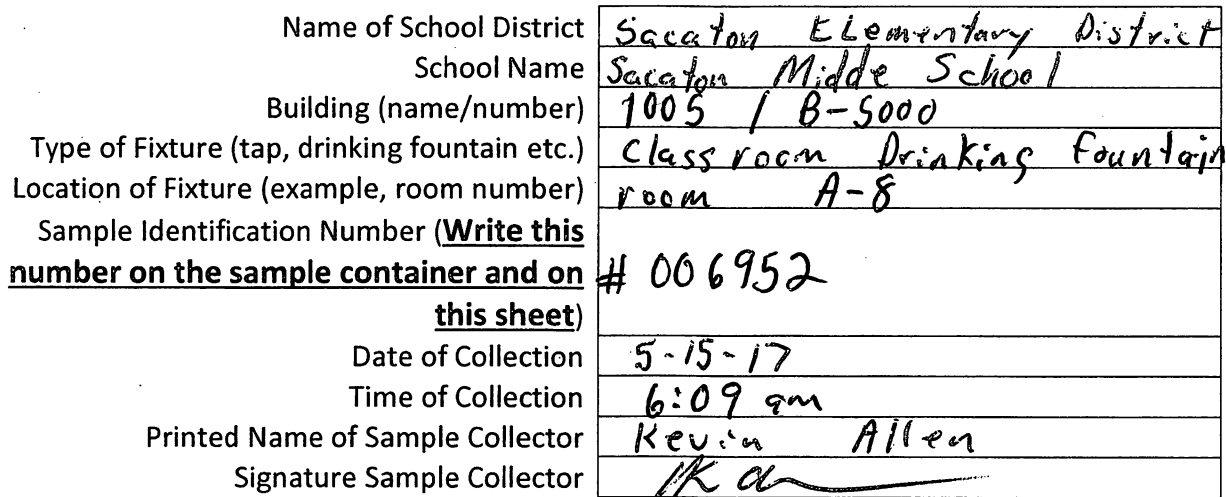 Name of School District Sacaton ELementary District
School Name Sacaton Midde School
Building (name/number) 1005 / B-5000
Type of Fixture (tap, drinking fountain etc.) Classroom Drinking fountain
Location of Fixture (example, room number) room A-8
Sample Identification Number (Write this
number on the sample container and on # 006952
this sheet)
Date of Collection 5-15-17
Time of Collection 6:09 am
Printed Name of Sample Collector Kevin Allen
Signature Sample Collector